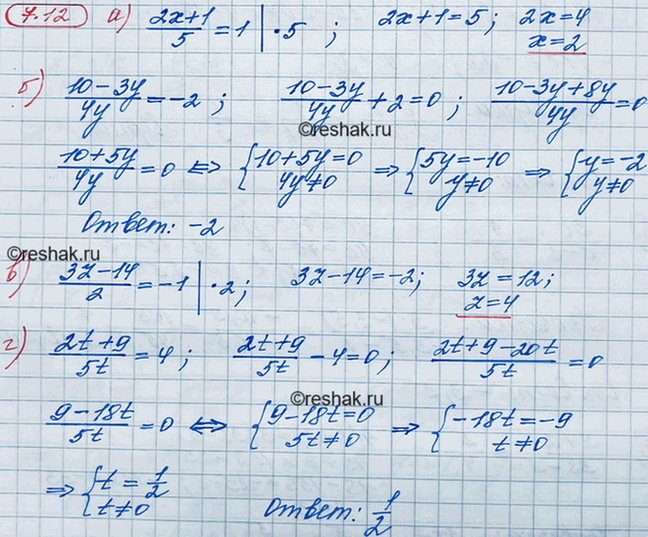 7.12 а) (2x+1)/5 = 1 | · 5 ; 2x+1=5; 2x=4
x=2
б) (10-3y)/4y = -2 ; (10-3y)/4y + 2 = 0 ; (10-3y+8y)/4y = 0
©reshak.ru
(10+5y)/4y = 0 ⇔ { 10+5y=0 4y≠0 ⇒ { 5y=-10 y≠0 ⇒ { y=-2 y≠0
Ответ: -2
©reshak.ru
в) (3z-14)/2 = -1 | · 2 ; 3z-14=-2; 3z=12;
z=4
г) (2t+9)/5t = 4 ; (2t+9)/5t - 4 = 0 ; (2t+9-20t)/5t = 0
©reshak.ru
(9-18t)/5t = 0 ⇔ { 9-18t=0 5t≠0 ⇒ { -18t=-9 t≠0
⇒ { t = 1/2 t≠0
Ответ: 1/2